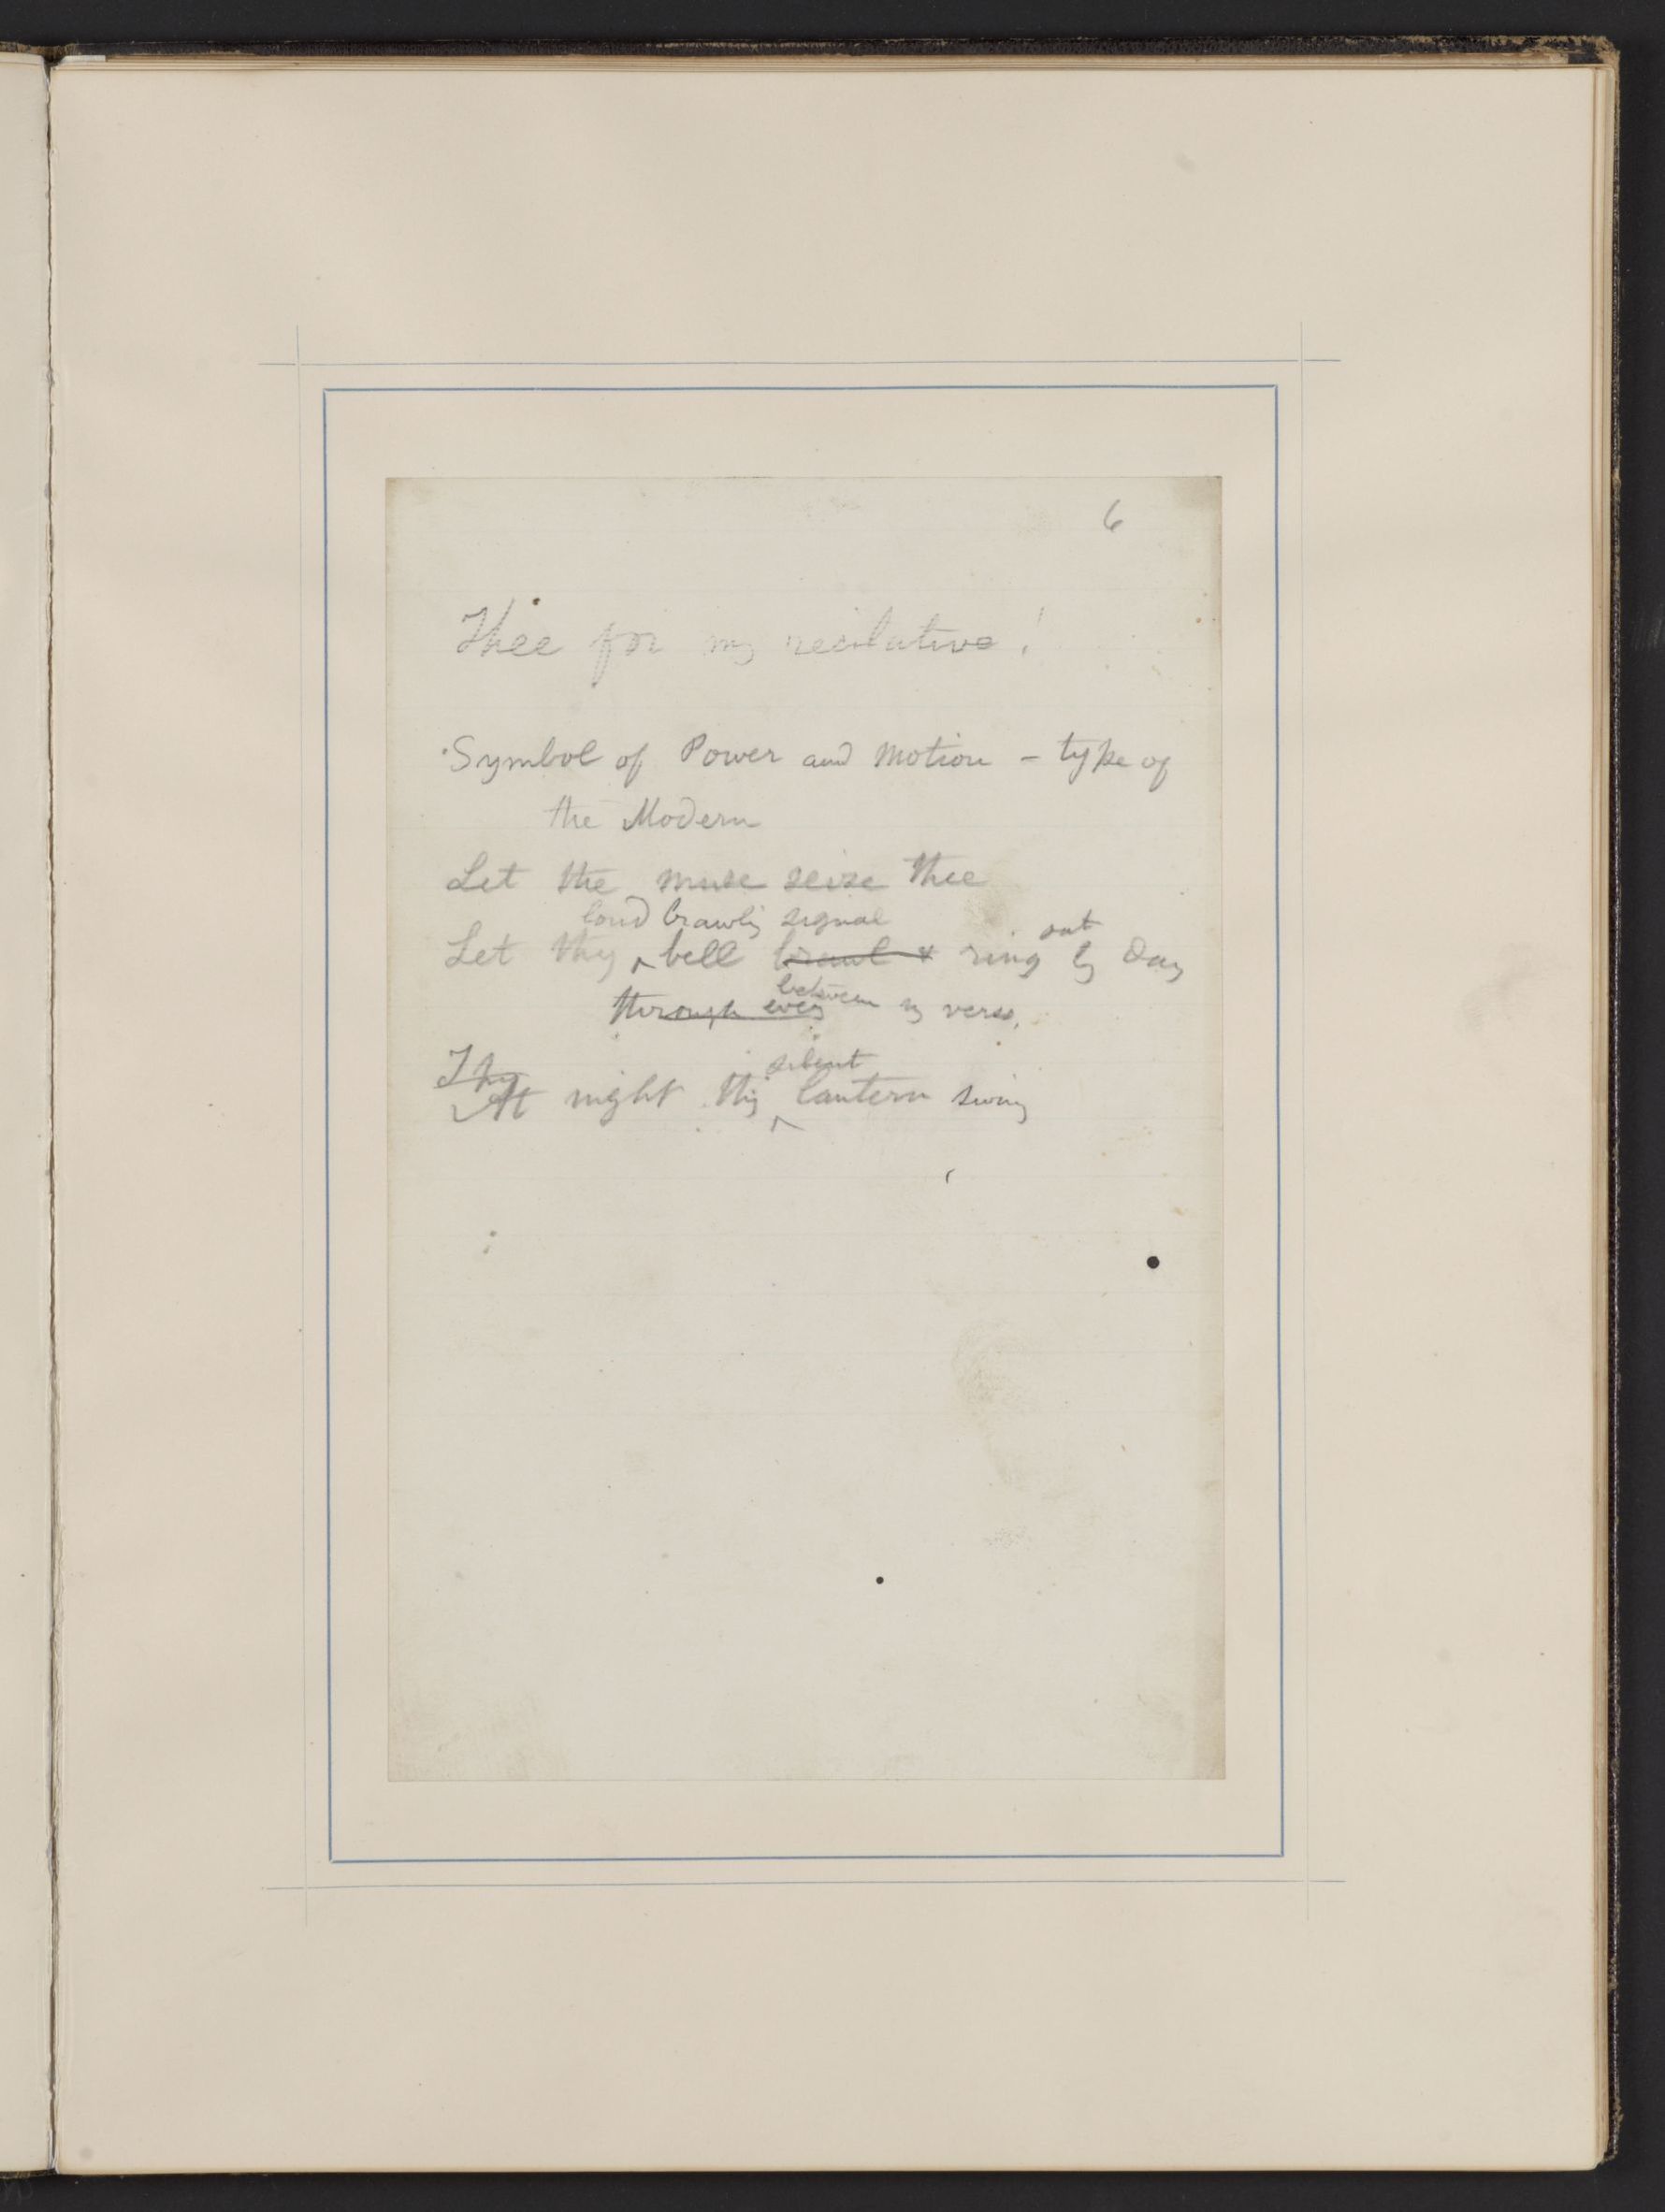 6
Thee for my recitative!
Symbol of Power and Motion – type of
the Modern
Let the muse seize thee
loud brawling signal
Let thy ^ bell brawl & ring out by day
between
through every my verse,
Thy
silent
At night thy ^ lantern swing